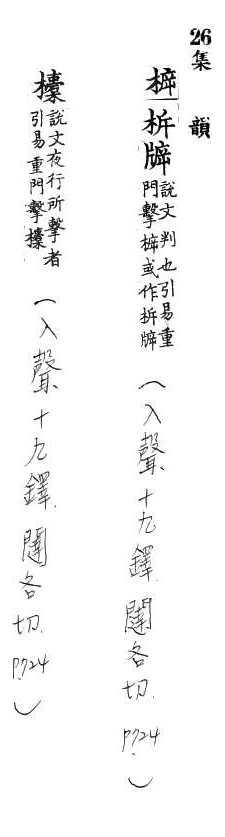 26集 韻
㭊 柝 𤖴 說文判也引易重門擊㭊或作柝𤖴（入聲十九鐸 闥各切. P.724）
㯓 說文夜行所擊者引易重門擊㯓（入聲十九鐸. 闥各切. P.724）